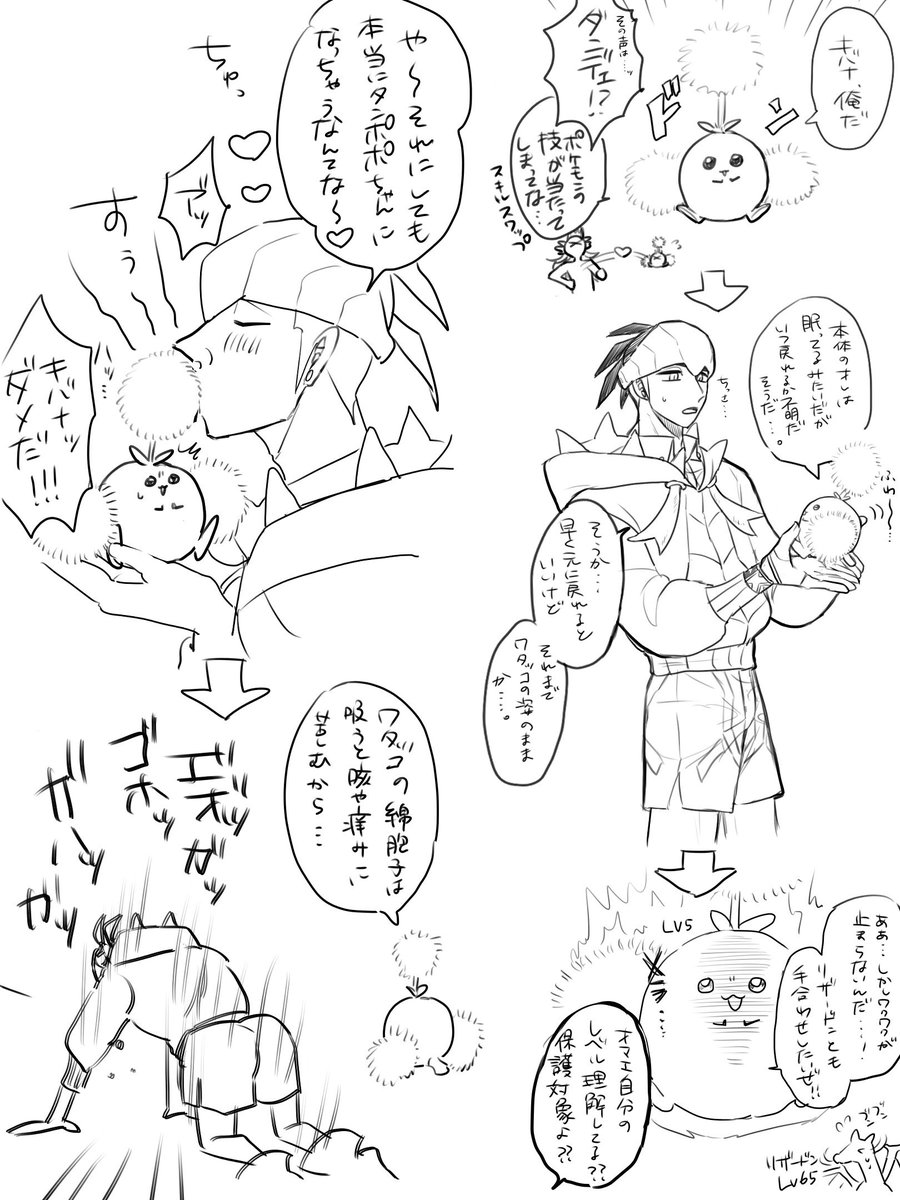 キバナ、俺だ
ドン
その声は…ッ
ダンデェ!?
ポケモンの
技が当たって
しまってな…
スキルスワップ
本体のオレは
眠ってるみたいだが
いつ戻れるか不明だ
そうだ…。
ふわ〜〜
そうか…
早く元に戻れると
いいけど
それまで
ワタッコの姿のまま
か……。
ああ…しかしワクワクが
止まらないんだ…!
リザードンとも
手合わせしたいぜ!!
LV5
メラ…
オマエ自分の
レベル理解してる??
保護対象よ??
ブンブン
リザードン
LV65
や〜それにしても
本当にタンポポちゃんに
なっちゃうなんてな〜♡
ちゅっ
すぅ
キバナッ
ダメだ!!!
ワタッコの綿胞子は
吸うと咳や痒みに
苦しむから…
エホッ
ゴホッ